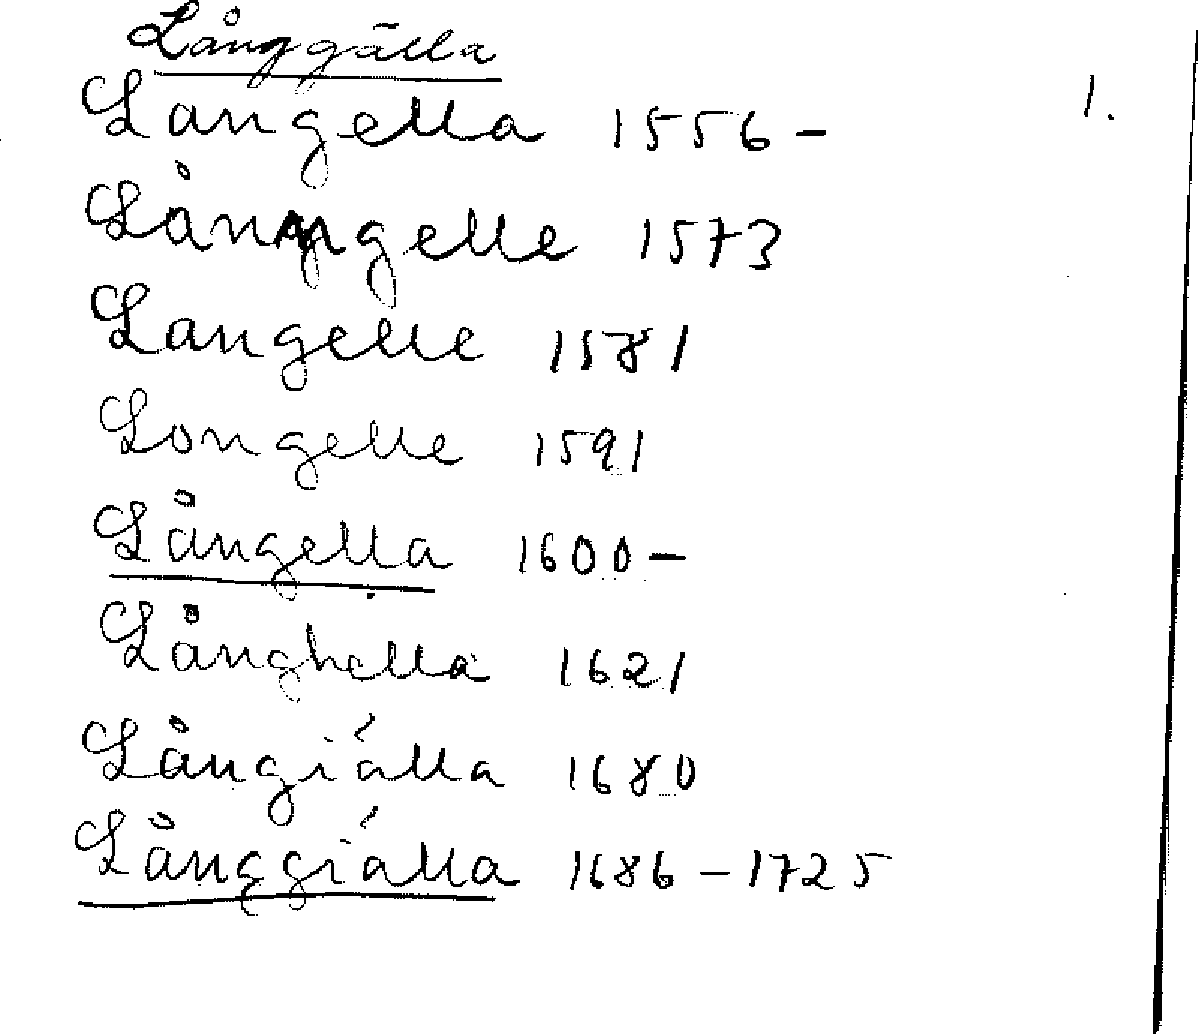 Långgälla
1.
Langella 1556-
Långelle 1573
Langelle 1581
Longelle 1591
Långella 1600-
Långhella 1621
Långiálla 1680
Långgiálla 1686-1725